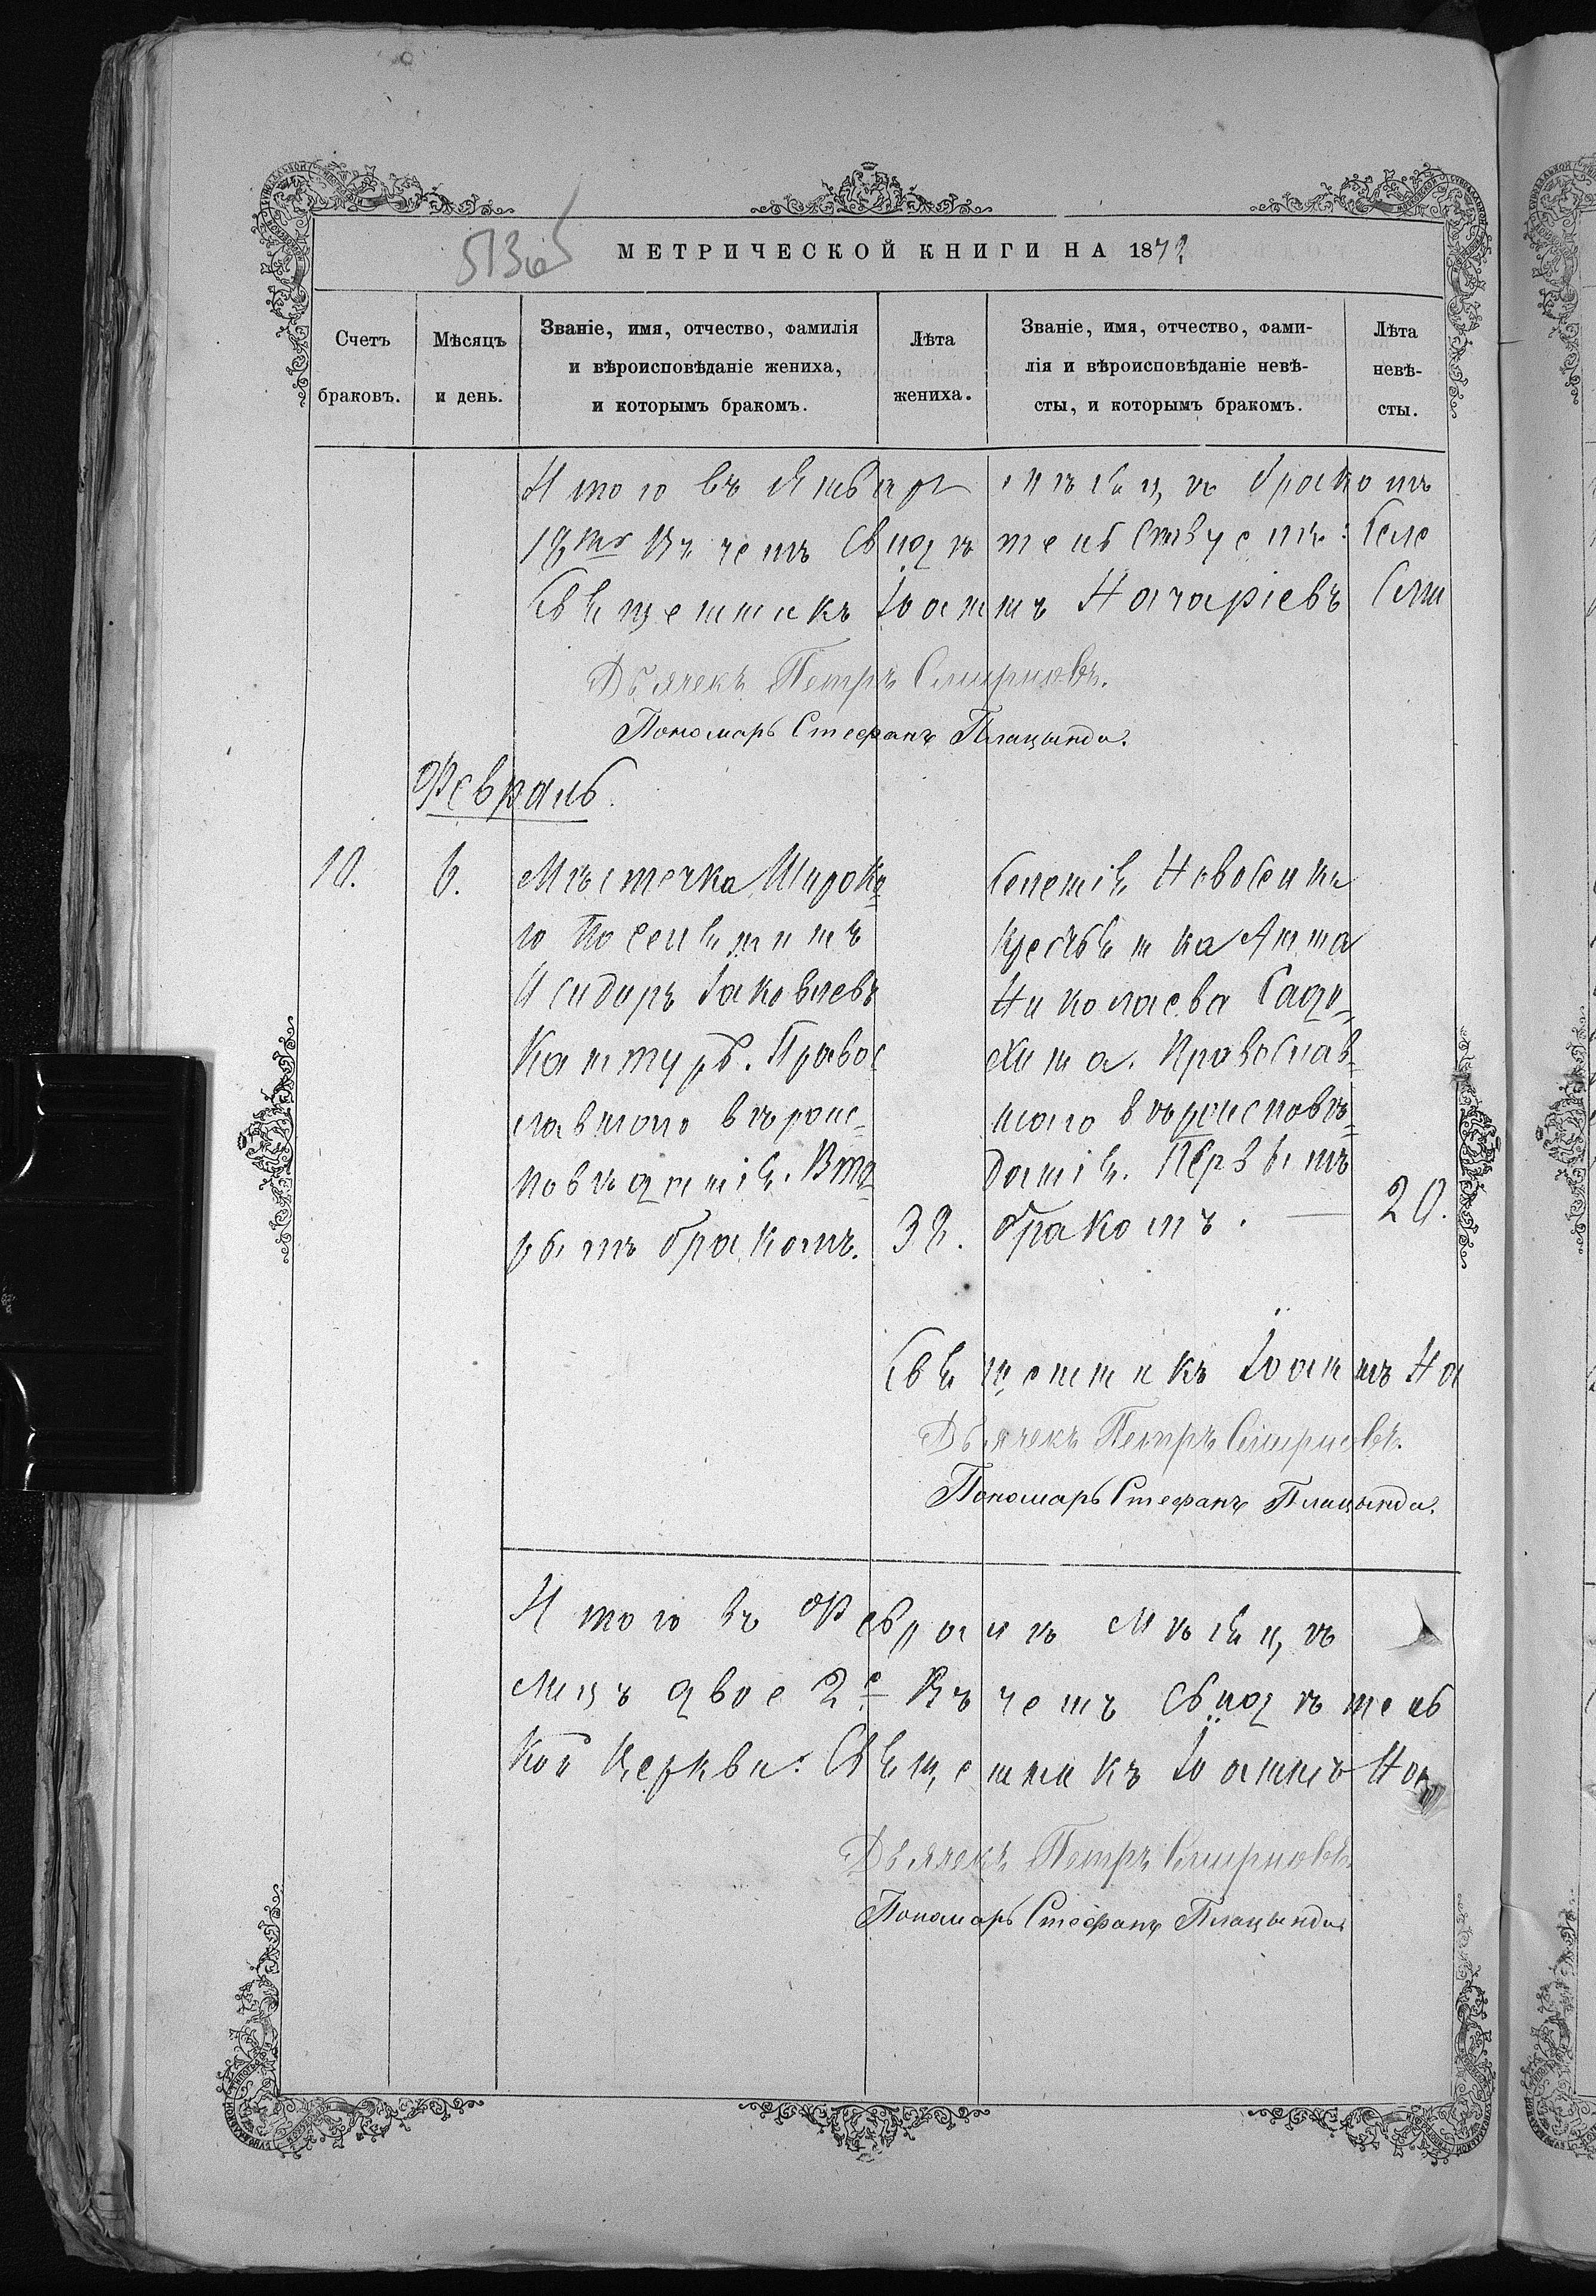 МЕТРИЧЕСКОЙ КНИГИ НА 1872
Счетъ браковъ.
Мѣсяцъ и день.
Званіе, имя, отчество, фамилія
и вѣроисповѣданіе жениха,
и которымъ бракомъ.
Лѣта жениха.
Званіе, имя, отчество, фами-
лія и вѣроисповѣданіе невѣ-
сты, и которымъ бракомъ.
Лѣта невѣ-
сты.
Итого въ Январѣ мѣсяцѣ бракомъ
Въ чемъ свидѣтельствуемъ: Селе
Священникъ Іоаннъ Назаріевъ
Дьячекъ Петръ Смирновъ.
Пономарь Стефанъ Плацында.
Февраль.
10. 6.
Мѣстечка Широка
го Поселянинъ
Исидоръ Іаковлевъ
Кантуръ. Правос
лавнаго вѣроис=
повѣданія. Вто
рымъ бракомъ. 32.
Селенія Новоселки
крестьянка Анна
Николаева
Православ=
наго вѣроисповѣ=
данія. Первымъ
бракомъ. — 20.
Священникъ Іоаннъ На
Дьячекъ Петръ Смирновъ.
Пономарь Стефанъ Плацында.
Итого въ Февралѣ мѣсяцѣ
лицъ двое 2е Въ чемъ свидѣтель
кой Церкви: Священникъ Іоаннъ На
Дьячекъ Петръ Смирновъ
Пономарь Стефанъ Плацында